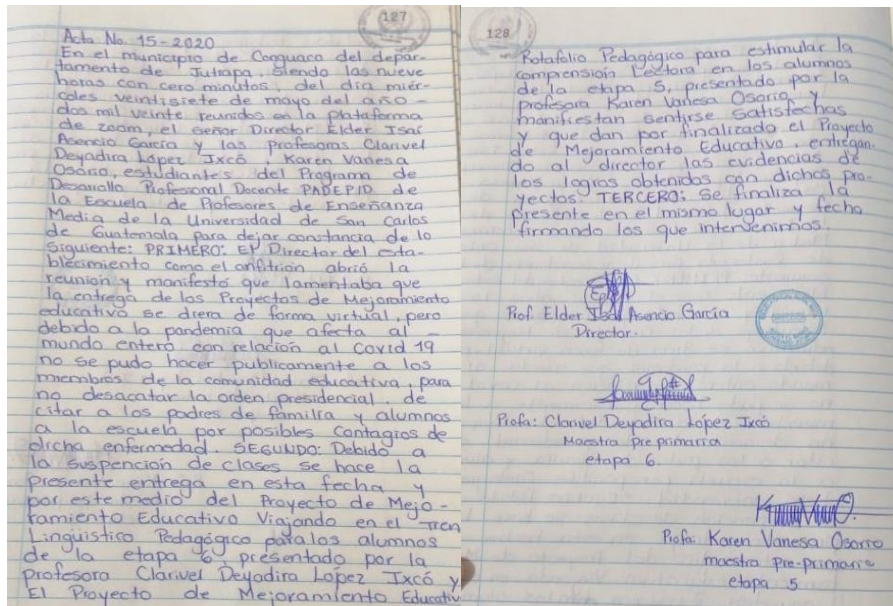 127
Acta No. 15-2020
En el municipio de Conguaco del depar-
tamento de Jutiapa, siendo las nueve
horas con cero minutos, del día miér-
coles veintisiete de mayo del año -
dos mil veinte reunidos en la plataforma
de zoom, el señor Director Elder Isaí
Asencio García y las profesoras Clarivel
Deyadira López Ixcó, Karen Vanesa
Osorio, estudiantes del Programa de
Desarrollo Profesional Docente PADEP/D de
la Escuela de Profesores de Enseñanza
Media de la Universidad de San Carlos
de Guatemala para dejar constancia de lo
siguiente: PRIMERO: El Director del esta-
blecimiento como el anfitrión abrió la
reunión y manifestó que lamentaba que
la entrega de los Proyectos de Mejoramiento
educativo se diera de forma virtual, pero
debido a la pandemia que afecta al -
mundo entero con relación al Covid 19
no se pudo hacer publicamente a los
miembros de la comunidad educativa, para
no desacatar la orden presidencial de
citar a los padres de familia y alumnos
a la escuela por posibles contagios de
dicha enfermedad. SEGUNDO: Debido a
la suspención de clases se hace la
presente entrega en esta fecha y
por este medio del Proyecto de Mejo-
ramiento Educativo Viajando en el Tren
Lingüistico Pedagógico para los alumnos
de la etapa 6, presentado por la
profesora Clarivel Deyadira López Ixcó y
El Proyecto de Mejoramiento Educativ
128
Rotafolio Pedagógico para estimular la
comprensión Lectora en los alumnos
de la etapa 5, presentado por la
profesora Karen Vanesa Osorio y
manifiestan sentirse satisfechas
y que dan por finalizado el Proyecto
de Mejoramiento Educativo, entregan-
do al director las evidencias de
los logros obtenidos con dichos pro-
yectos. TERCERO: Se finaliza la
presente en el mismo lugar y fecha
firmando los que intervenimos.
Prof. Elder Isaí Asencio García
Director.
Profa: Clarivel Deyadira López Ixcó
Maestra Pre primaria
etapa 6.
Profa: Karen Vanesa Osorio
maestra pre-primaria
etapa 5